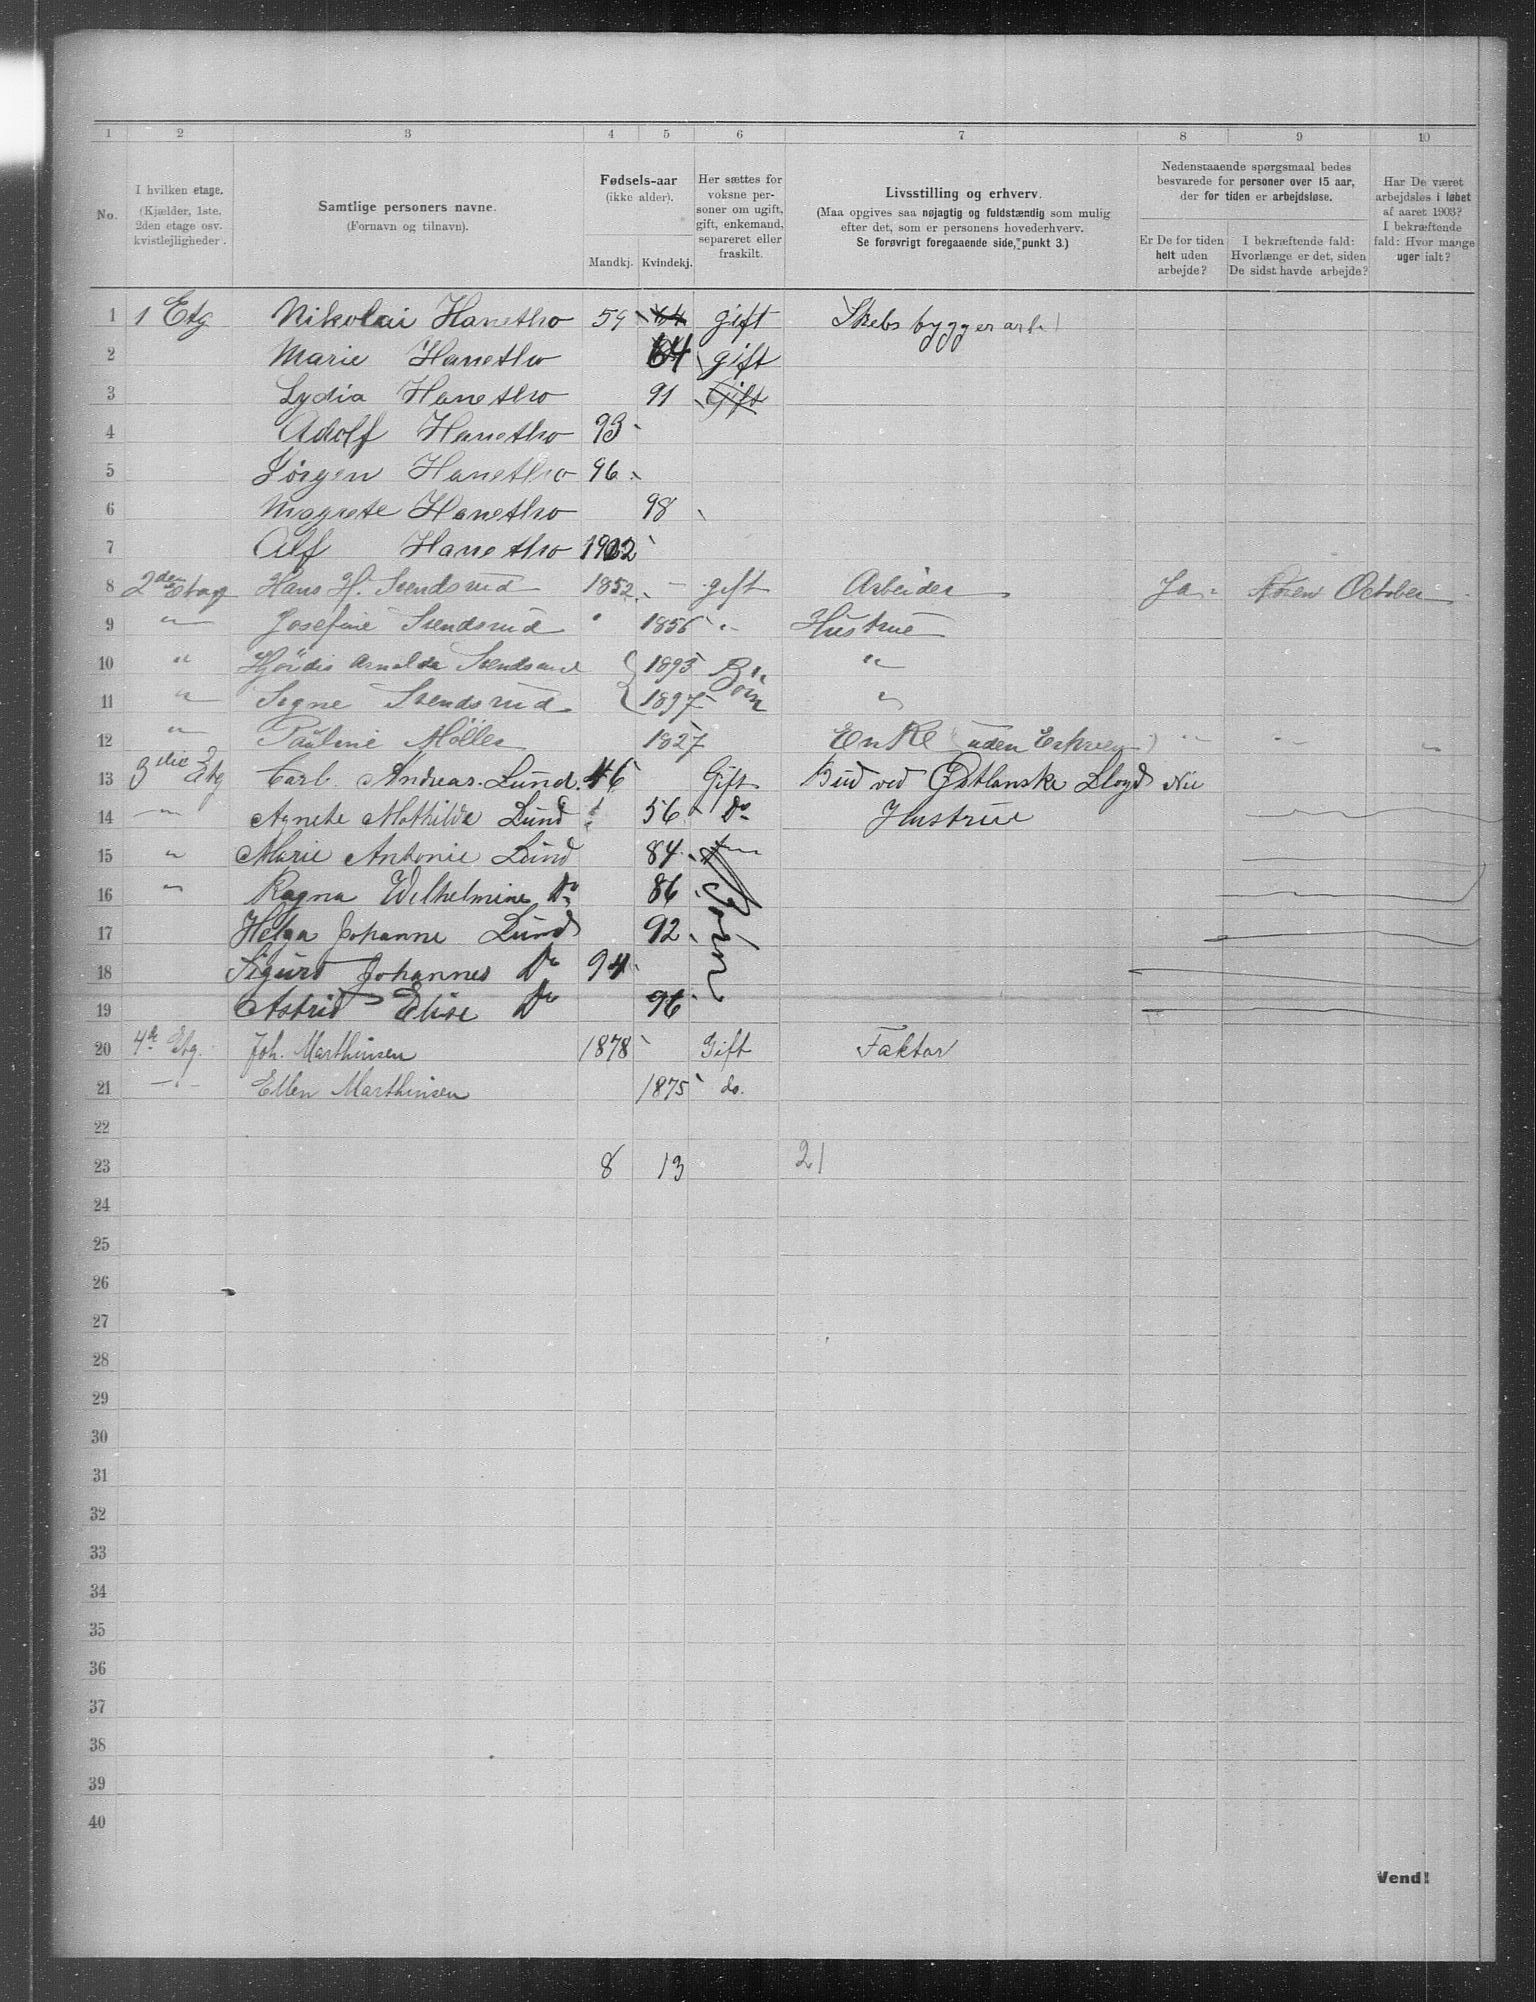 1 2 3 4 5 6 7 8 9 10
No.
I hvilken etage.
(Kjælder, 1ste,
2den etage osv.
kvistlejligheder.
Samtlige personers navne.
(Fornavn og tilnavn).
Fødsels-aar
(ikke alder).
Mandkj. Kvindekj.
Her sættes for
voksne per-
soner om ugift,
gift, enkemand,
separeret eller
fraskilt.
Livsstilling og erhverv.
(Maa opgives saa nøjagtig og fuldstændig som mulig
efter det, som er personens hovederhverv.
Se forøvrigt foregaaende side, punkt 3.)
Nedenstaaende spørgsmaal bedes
besvarede for personer over 15 aar,
der for tiden er arbejdsløse.
Er De for tiden
helt uden
arbejde?
I bekræftende fald:
Hvorlænge er det, siden
De sidst havde arbejde?
Har De været
arbejdsløs i løbet
af aaret 1903?
I bekræftende
fald: Hvor mange
uger ialt?
1 1 Etg Nikolai Hanetho 59 64 gift Skebsbyggerarb
2 Marie Hanetho 64 gift
3 Lydia Hanetho 91 Gift
4 Adolf Hanetho 93
5 Jørgen Hanetho 96
6 Magrete Hanetho 98
7 Alf Hanetho 1902
8 2den Etage Hans H. Svendsrud 1852 - gift Arbeider Ja October
9 " Josefine Svendsrud " 1856 " Hustrue
10 " Hjördis Arnalda Svendsrud 1893 Börn "
11 " Signe Svendsrud 1897 "
12 " Pauline Möller 1827 Enke (uden Erhverv) " " "
13 3die Etg Carl Andreas Lund. 46 Gift Bud ved Østlanske Lloyd Nei
14 " Agnete Mathilde Lund 56 Do Hustrue
15 " Marie Antonie Lund 84
16 " Ragna Wilhelmine Do 86 Børn
17 Helga Johanne Lund 92
18 Sigurd Johannes Do 94
19 Astrid Elise Do 96
20 4de Etg. Joh. Marthinsen 1878 Gift Faktor
21 -"- Ellen Marthinsen 1875 do.
22
23 8 13 21
24
25
26
27
28
29
30
31
32
33
34
35
36
37
38
39
40
Vend!